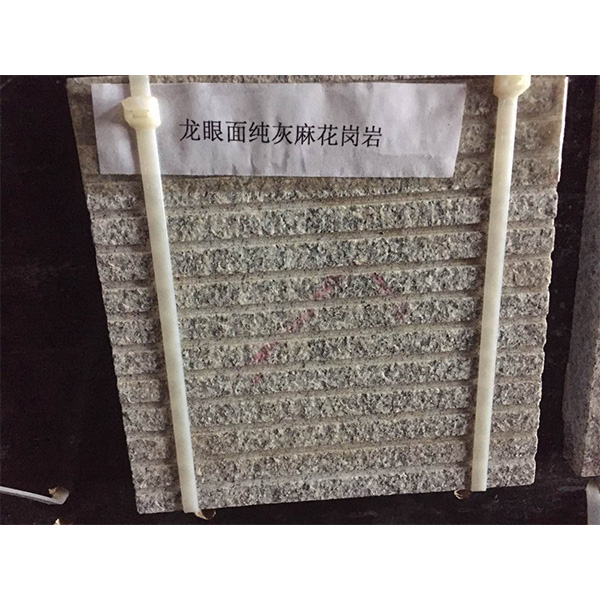 龙眼面纯灰麻花岗岩